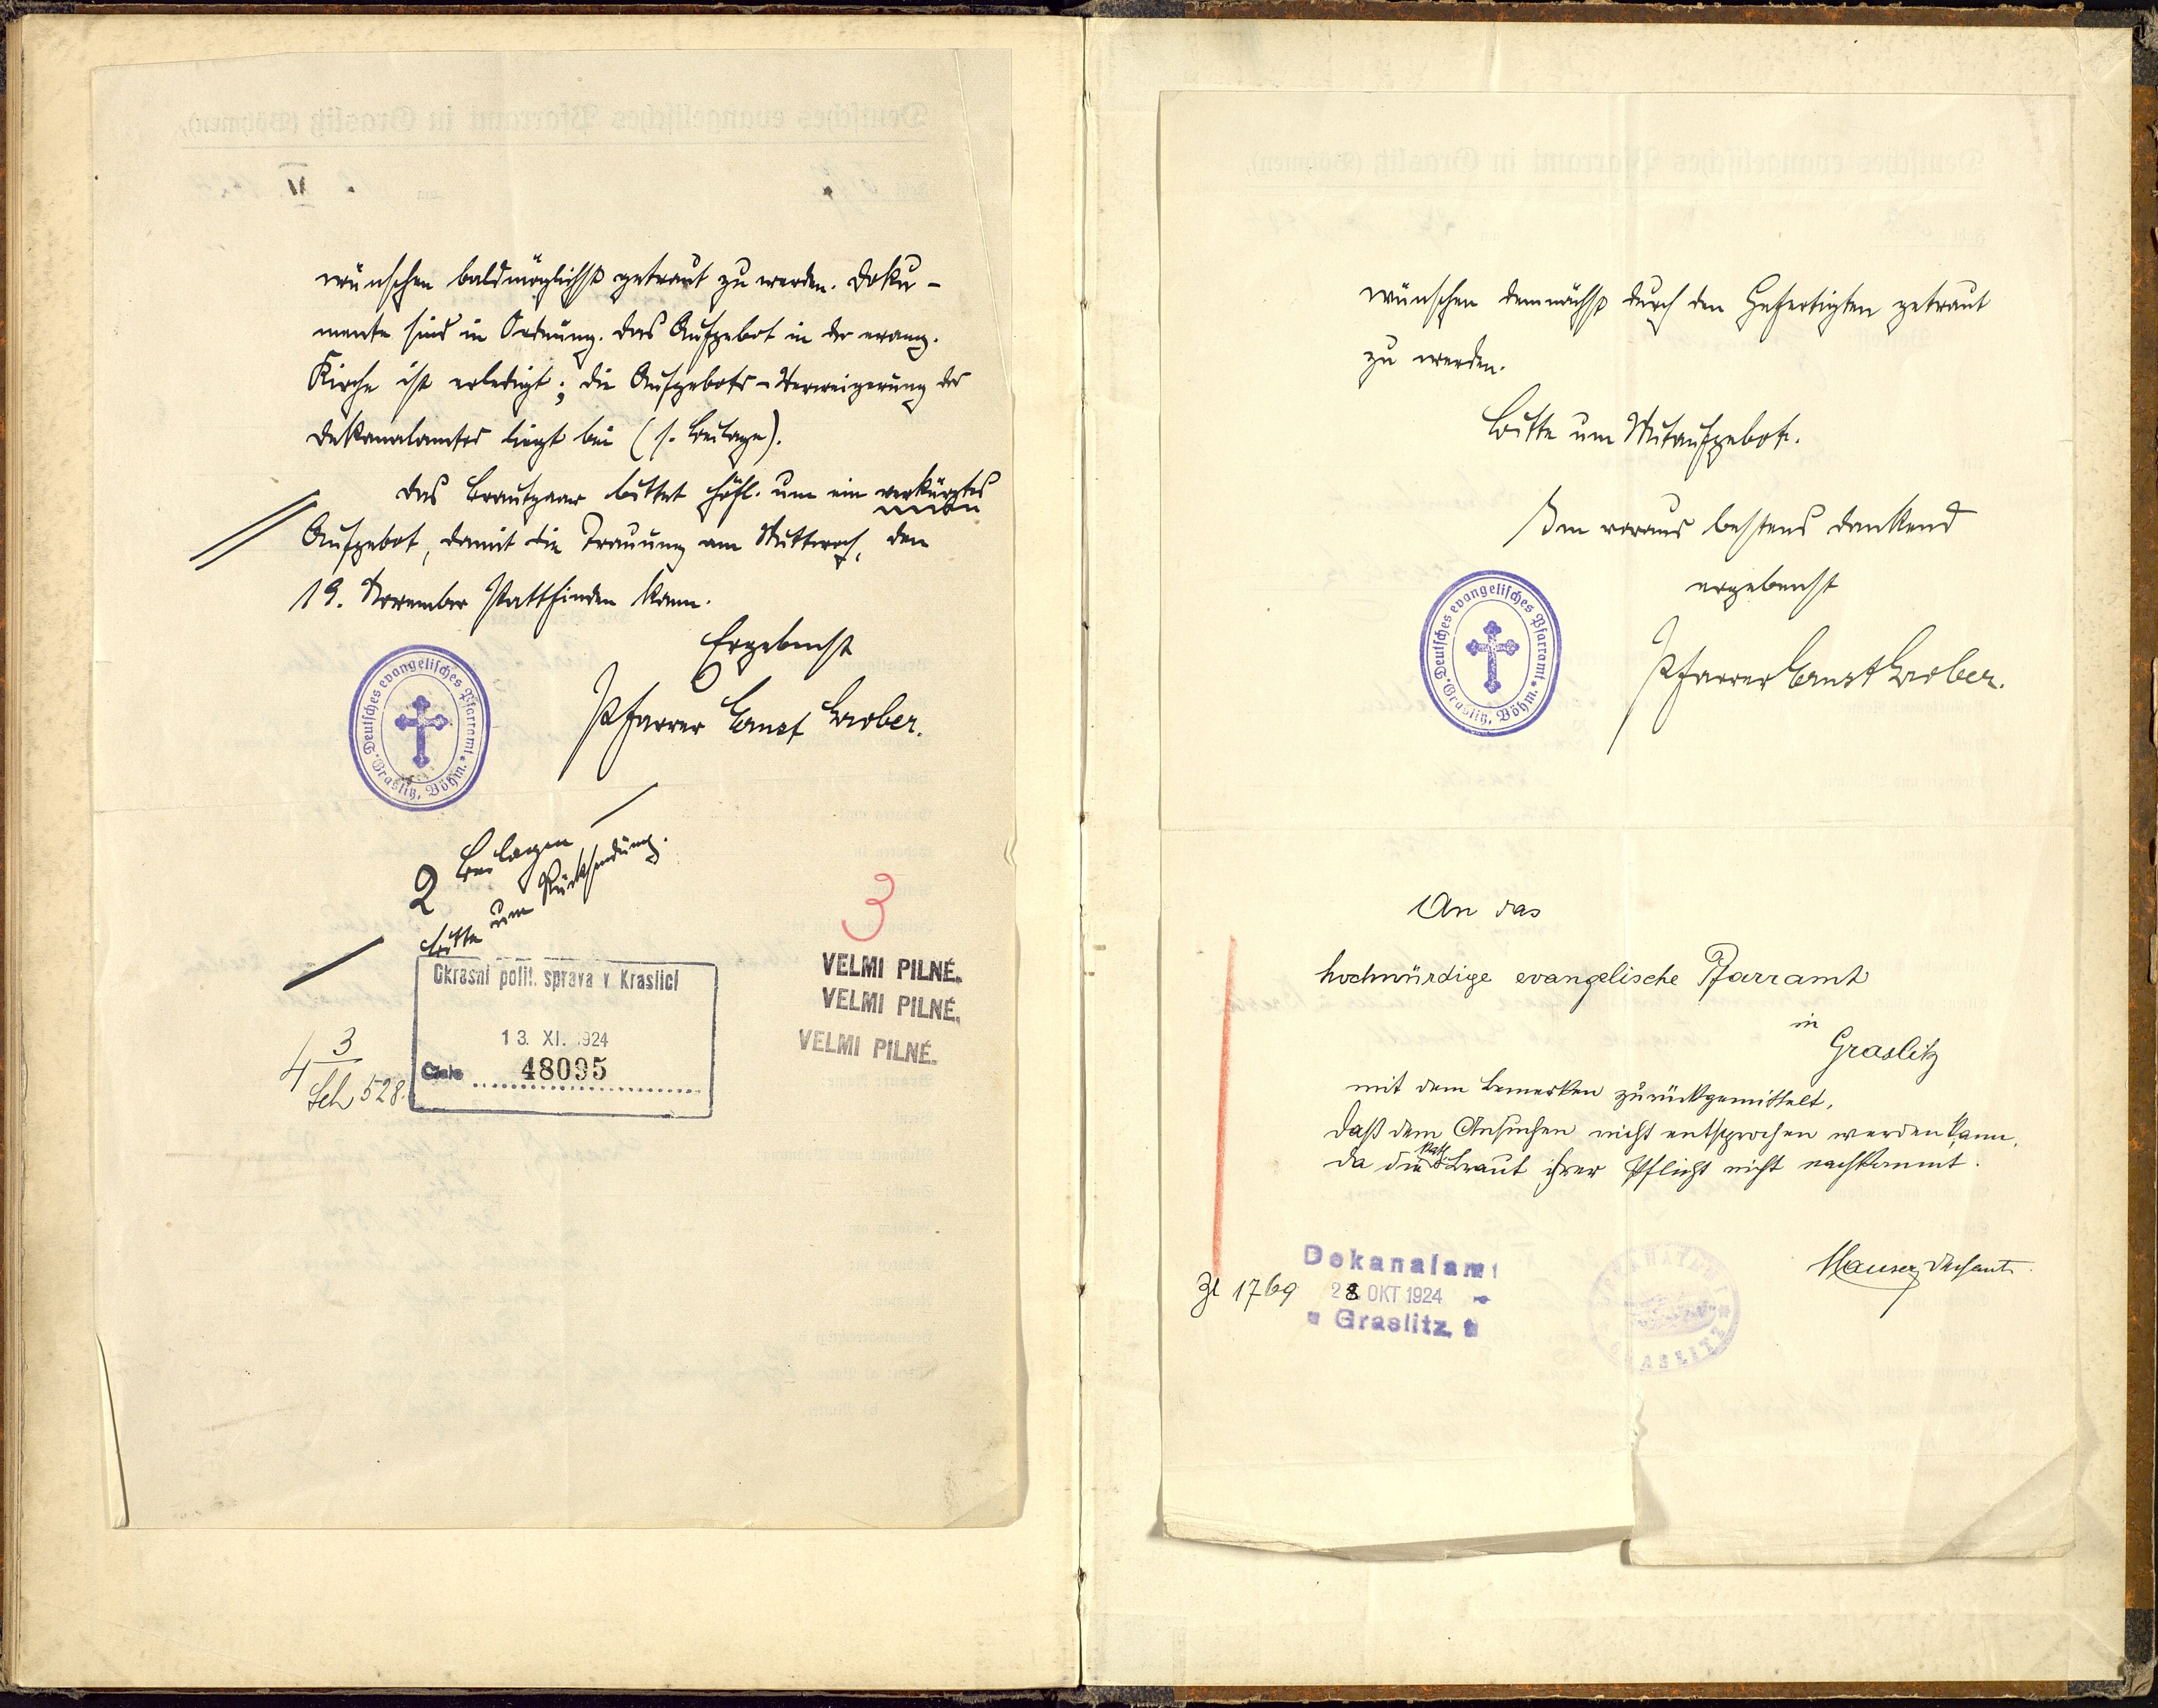 wünschen baldmöglichst getraut zu werden. Doku-
mente sind in Ordnung. Das Aufgebot in der evang.
Kirche ist erledigt; die Aufgebots-Verweigerung des
Dekanalamtes liegt bei (s. Beilage).
Das Brautpaar bittet höfl. um ein verkürztes
Aufgebot, damit die Trauung am Mittwoch, den
19. November stattfinden kann.
Ergebenst
Pfarrer Ernst Grober.
Deutsches evangelisches Pfarramt
Graslitz, Böhm.
2 Beilagen
bitte um Rücksendung.
3
VELMI PILNÉ.
VELMI PILNÉ.
VELMI PILNÉ.
Okresní polit. správa v Kraslici
13. XI. 1924
Číslo 48095
4 3
Sch 528.
wünschen demnächst durch den Gefertigten getraut
zu werden.
Bitte um Mitaufgebot.
Im voraus bestens dankend
ergebenst
Pfarrer Ernst Grober.
Deutsches evangelisches Pfarramt
Graslitz, Böhm.
An das
hochwürdige evangelische Pfarramt
in
Graslitz
mit dem Bemerken zurückgemittelt,
daß dem Ansuchen nicht entsprochen werden kann,
da die kath. Braut ihrer Pflicht nicht nachkommt.
Mauser Dechant.
Zl 1769
Dekanalamt
28. OKT 1924
Graslitz.
GRASLITZ